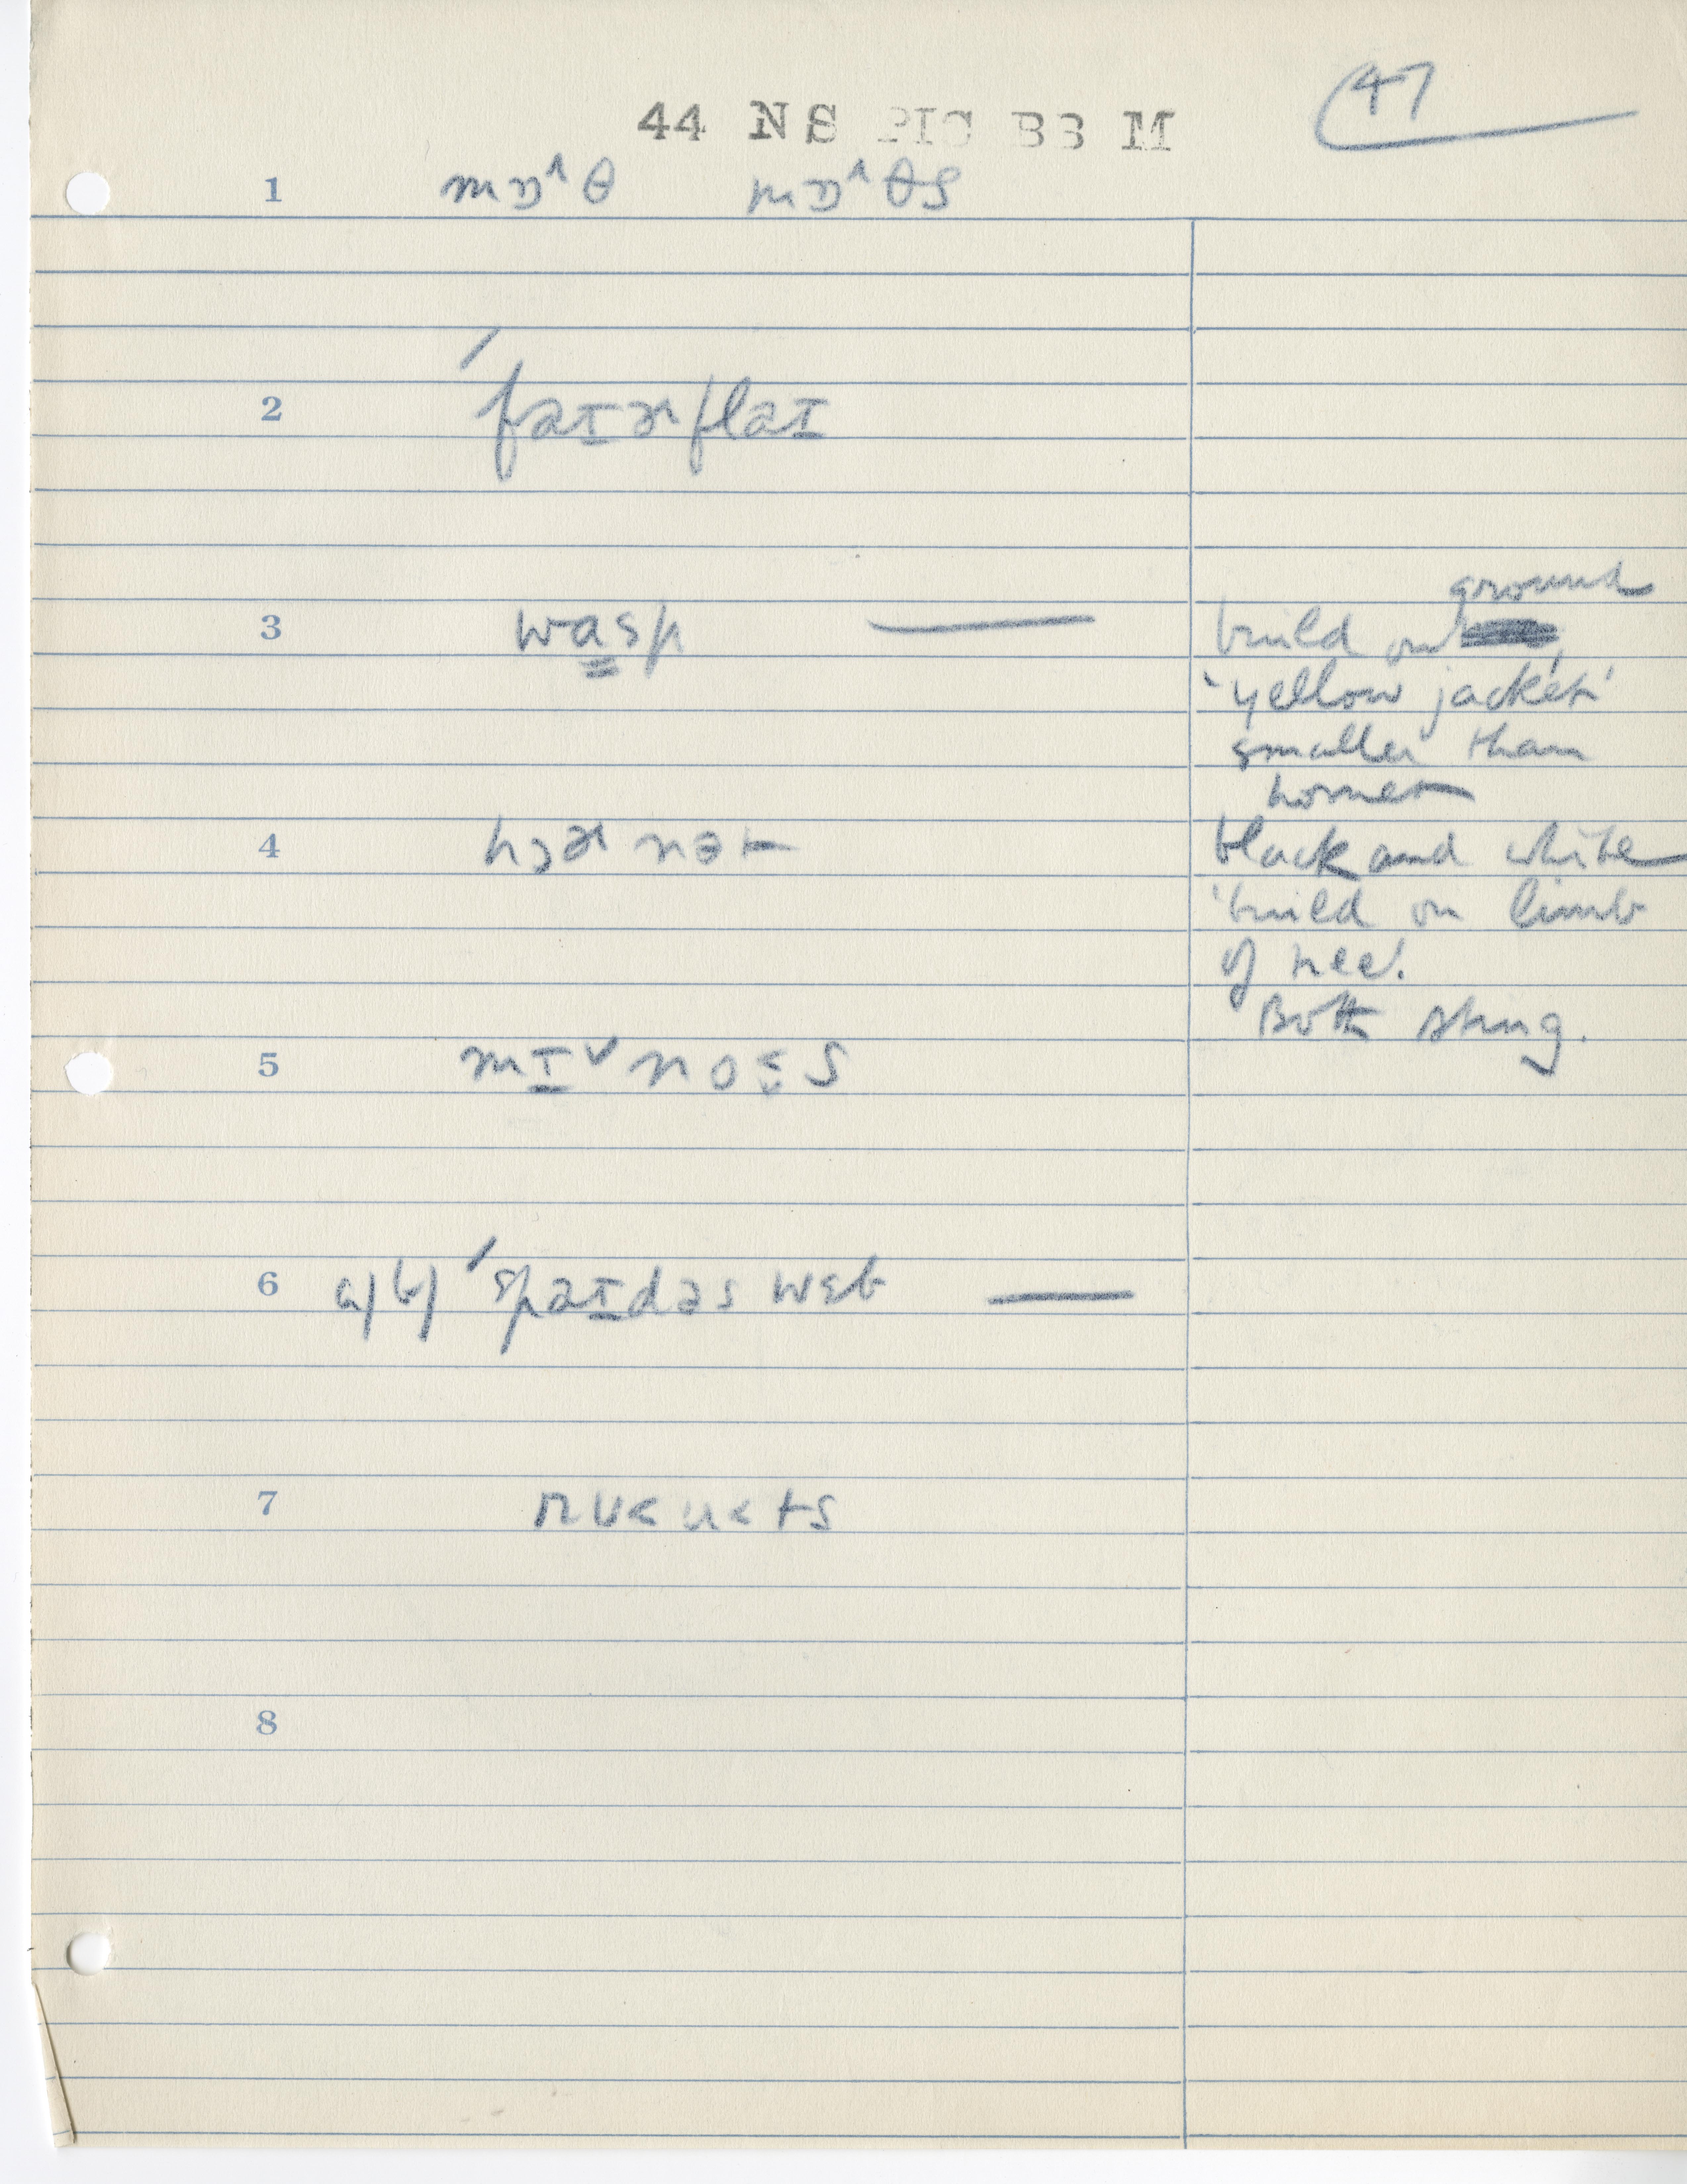 47
44 NS PIC BB M
1 mɒ˄θ mɒ˄θs
2 ˈfaɪɚflaɪ
ground
3 wasp — build on
'yellow jacket'
smaller than
hornet
4 hɔɚnət black and white
'build on limb
of tree'.
Both sting.
5 mɪ˅noʊs
6 a) b) ˈspaɪdəs wɛb —
7
8